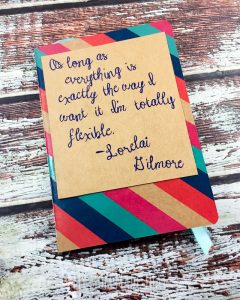 As long as
everything is
exactly the way I
want it I'm totally
flexible.
-Lorelai
Gilmore